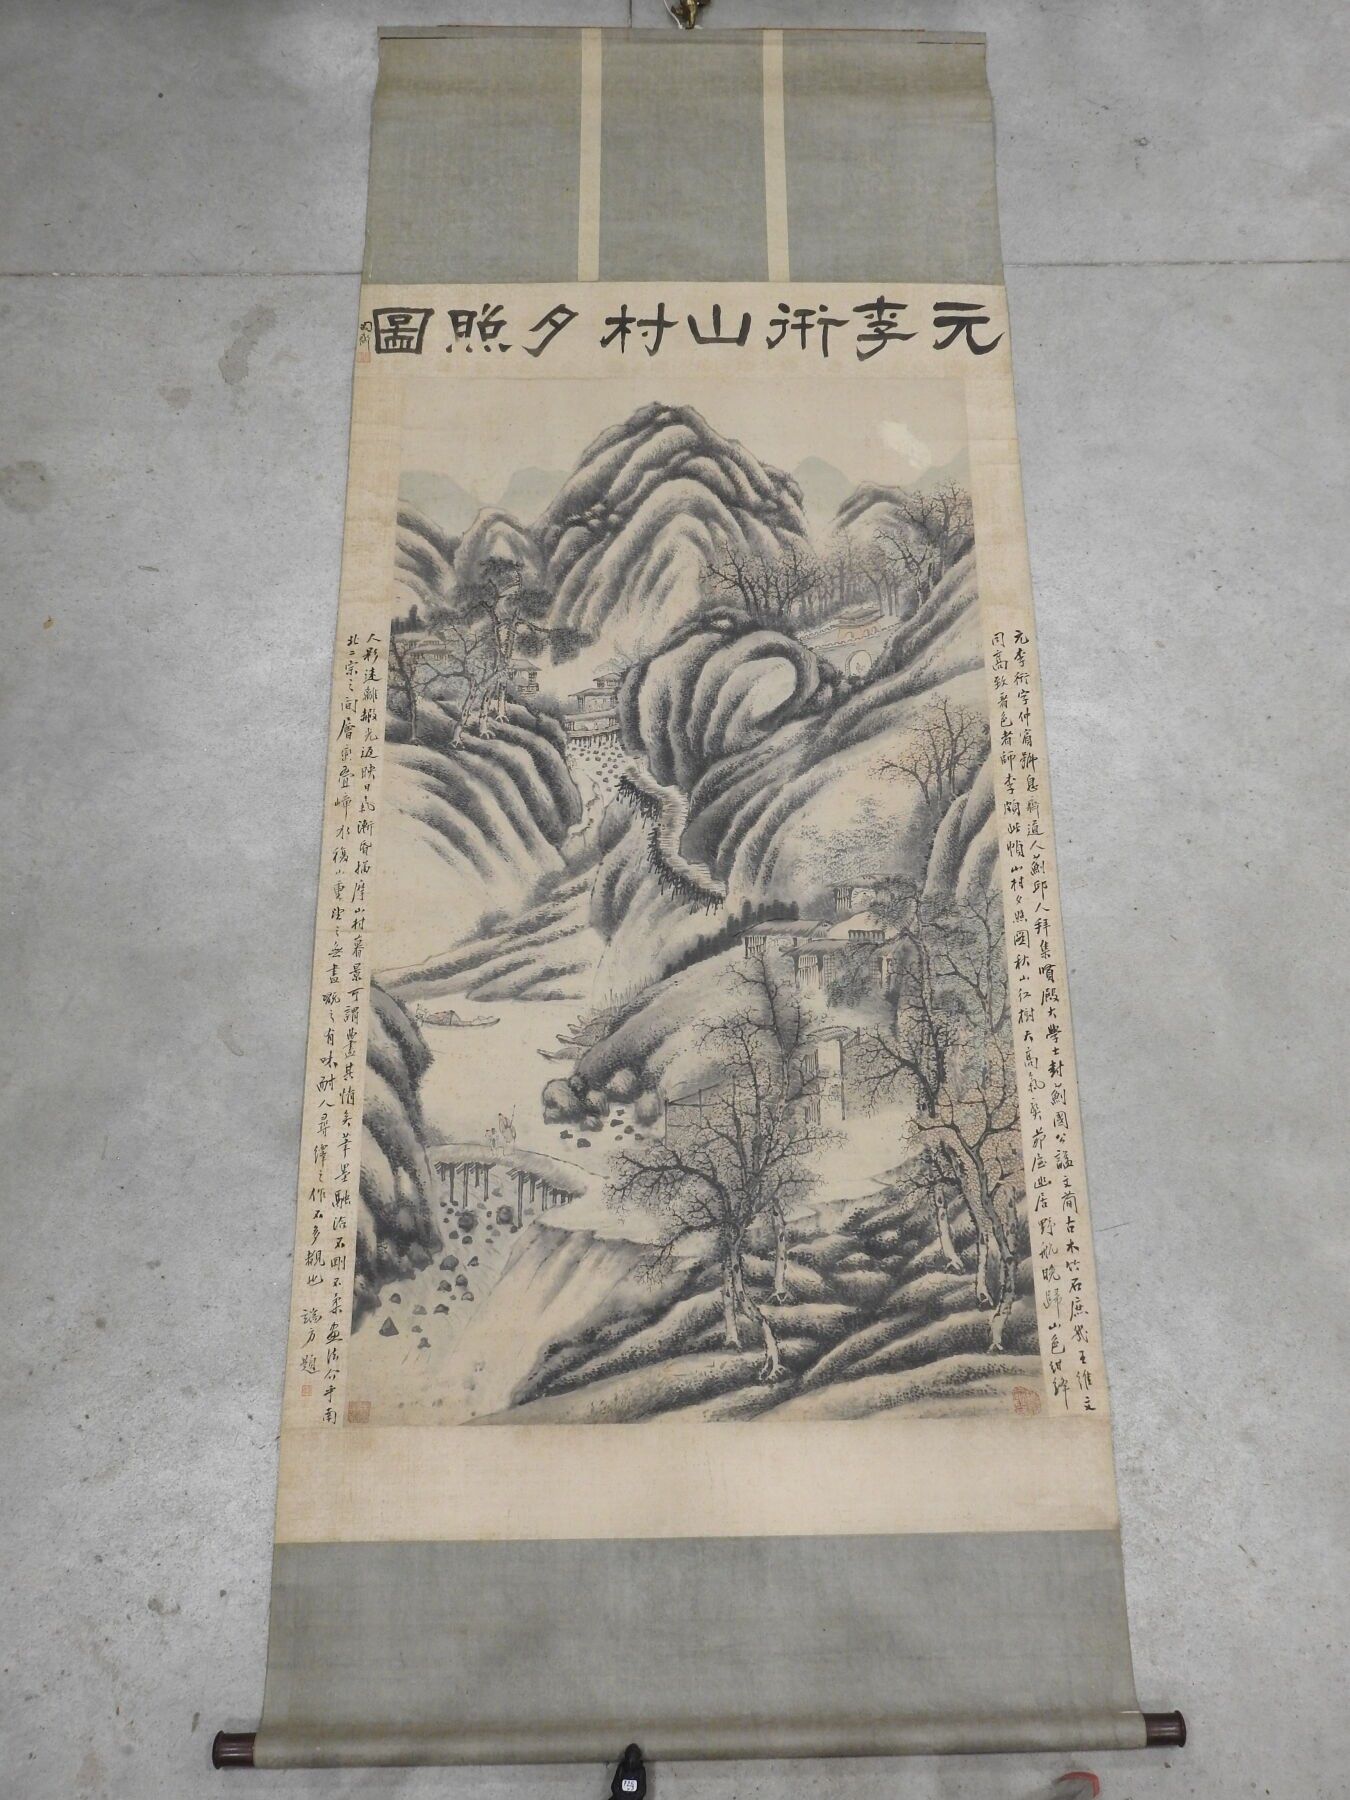 元李衎山村夕照圖
元李衎字仲賓號息齋道人薊邱人拜集賢殿大學士封薊國公謚文簡古木竹石庶幾王維文
同高致着色者師李頗此幀山村夕照圖秋山紅樹天高氣爽茆庵幽居野航晚歸山色紺絳
人影迷離椴光返映日氣漸昏描摩山村暮景可謂曲盡其情矣筆墨融洽不剛不柔畫法介乎南
北二宗之間層巒疊嶂水複山重望之無盡味之有味耐人尋繹之作不多覯也
端方題